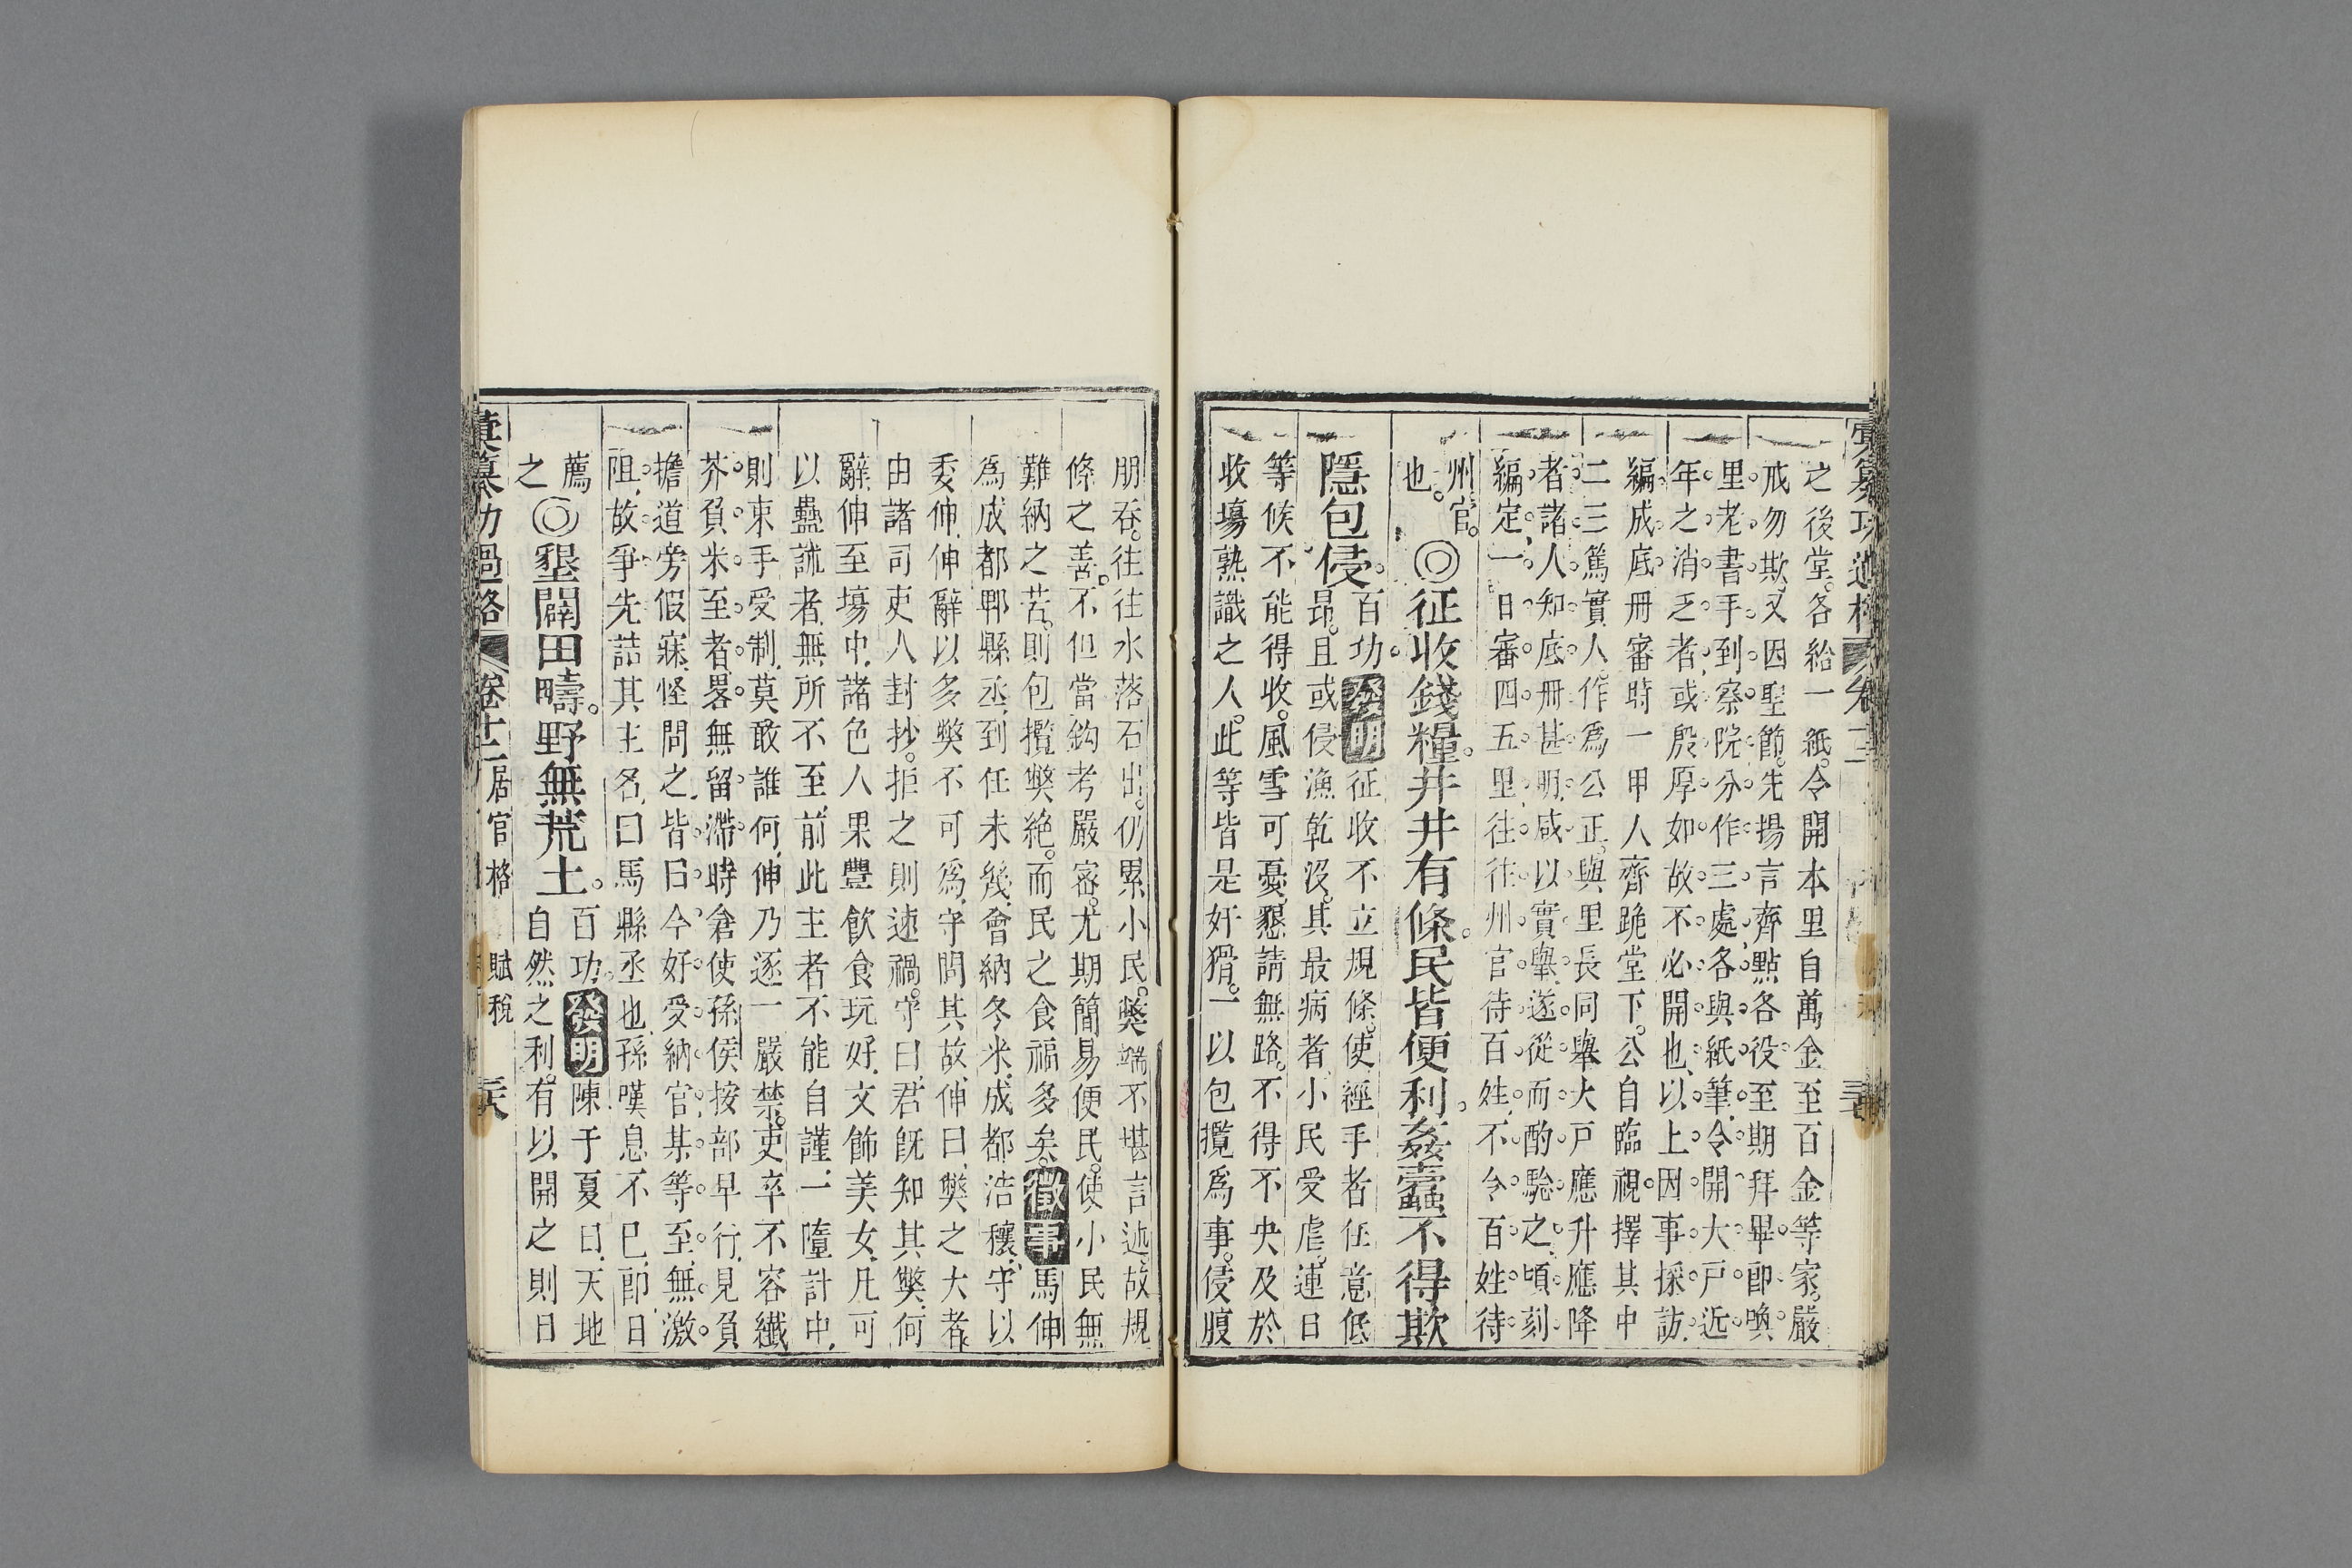 彙纂功過格 卷十二
之後堂。各給一紙。令開本里自萬金至百金等家。嚴
戒勿欺。又因聖節。先揚言齊點各役。至期拜畢。即喚
里老書手到察院。分作三處。各與紙筆。令開大戶。近
年之消乏者。或殷厚如故。不必開也。以上因事採訪。
編成底冊。審時一甲人齊跪堂下。公自臨視。擇其中
二三篤實人。作爲公正。與里長同舉大戶應升應降
者。諸人知底冊甚明。咸以實舉。遂從而酌騐之。頃刻
編定。一日審四五里。往往州官待百姓。不令百姓待
州官。
也。
◎征收錢糧。井井有條。民皆便利。姦蠹不得欺
隱包侵。百功。發明征收不立規條。使經手者任意低
昂。且或侵漁乾沒。其最病者。小民受虐。連日
等候不能得收。風雪可憂。懇請無路。不得不央及於
收塲熟識之人。此等皆是奸猾。一以包攬爲事。侵腹
朋吞。往往水落石出。仍累小民。獘端不堪言述。故規
條之善。不但當鈎考嚴密。尤期簡易便民。使小民無
難納之苦。則包攬獘絶。而民之食福多矣。徵事馬伸
爲成都郫縣丞。到任未幾。會納冬米。成都浩穰。守以
委伸。伸辭以多獘不可爲。守問其故。伸曰。獘之大者。
由諸司吏人封抄。拒之則速禍。守曰。君旣知其獘。何
辭。伸至塲中。諸色人果豐飲食玩好。文飾美女。凡可
以蠱訹者。無所不至。前此主者不能自謹。一墮計中。
則束手受制。莫敢誰何。伸乃逐一嚴禁。吏卒不容纖
芥。負米至者。畧無留滯。時倉使孫俟按部早行。見負
擔道旁假寐。怪問之。皆曰。今好受納官。某等至。無激
阻。故爭先詰其主名。曰馬縣丞也。孫嘆息不已。即日
薦
之
◎墾闢田疇。野無荒土。百功。發明陳于夏曰。天地
自然之利。有以開之。則日
彙纂功過格 卷十二 居官格 賦稅 三六